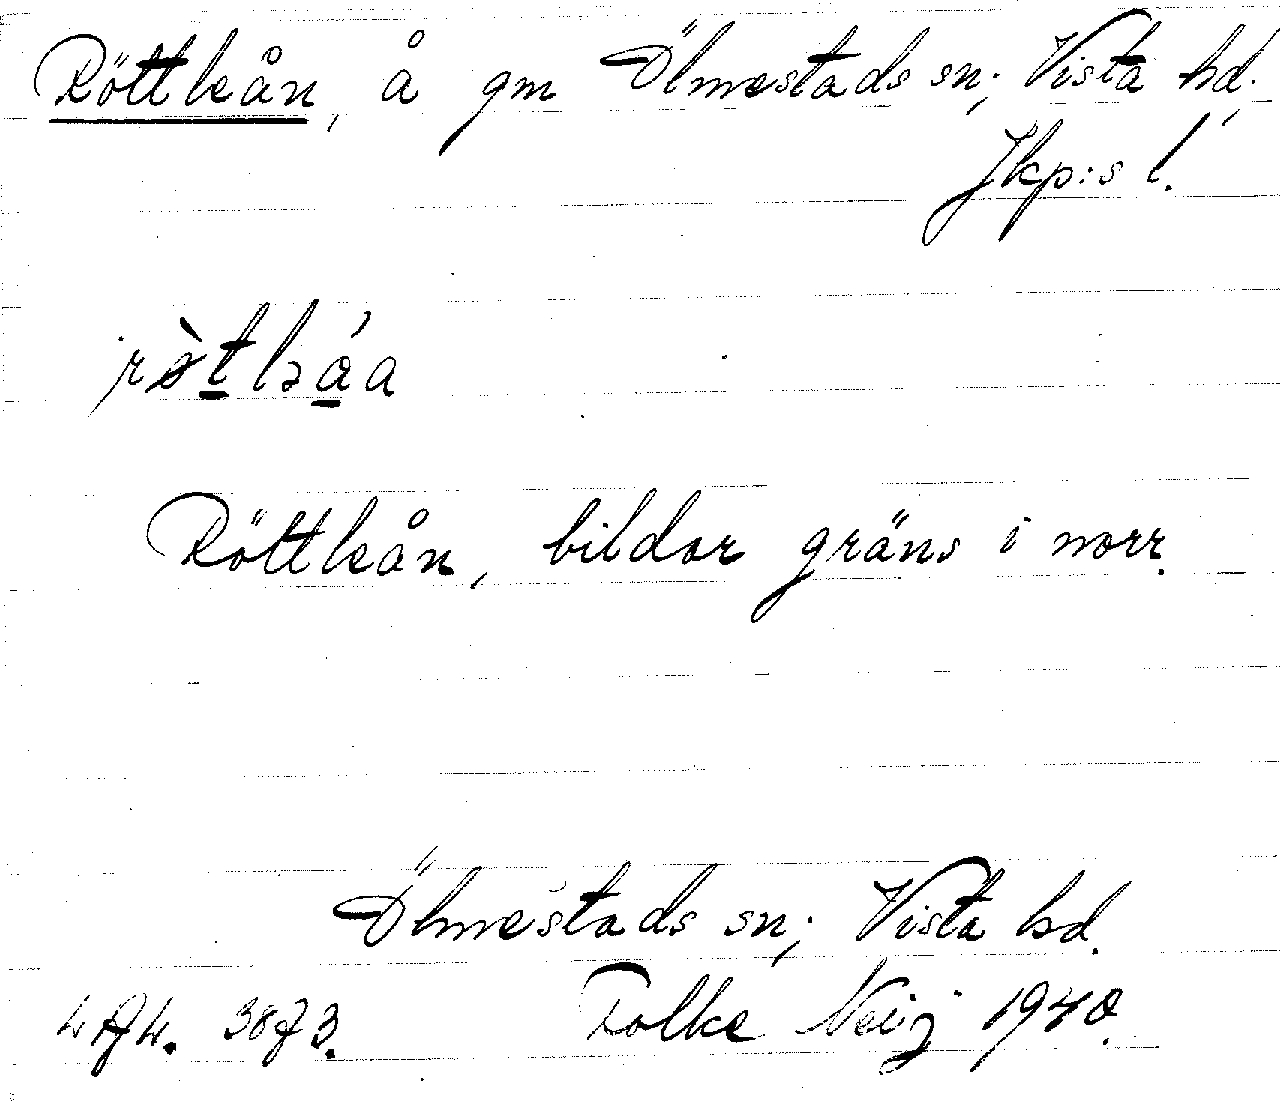 Röttleån, å gm Ölmestads sn; Vista hd.,
Jkp:s l.
Röttleån, bildar gräns i norr.
Ölmestads sn; Vista hd.
Folke Neij 1940.